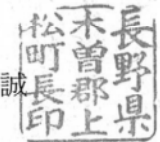 誠
長野県
木曽郡上
松町長印